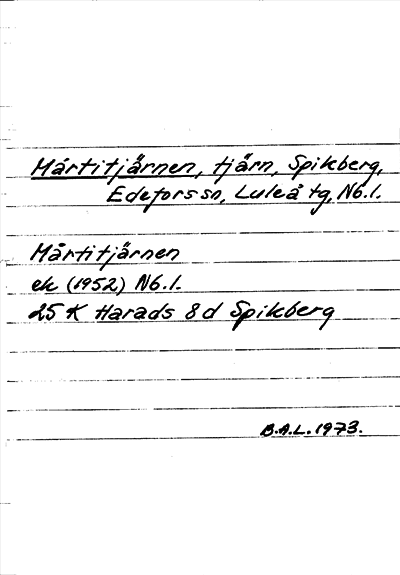 Mårtitjärnen, tjärn, Spikberg,
Edeforssn, Luleå tg, Nb.l.
Mårtitjärnen
ek (1952) Nb.l.
25 K Harads 8 d Spikberg
B.A.L. 1973.